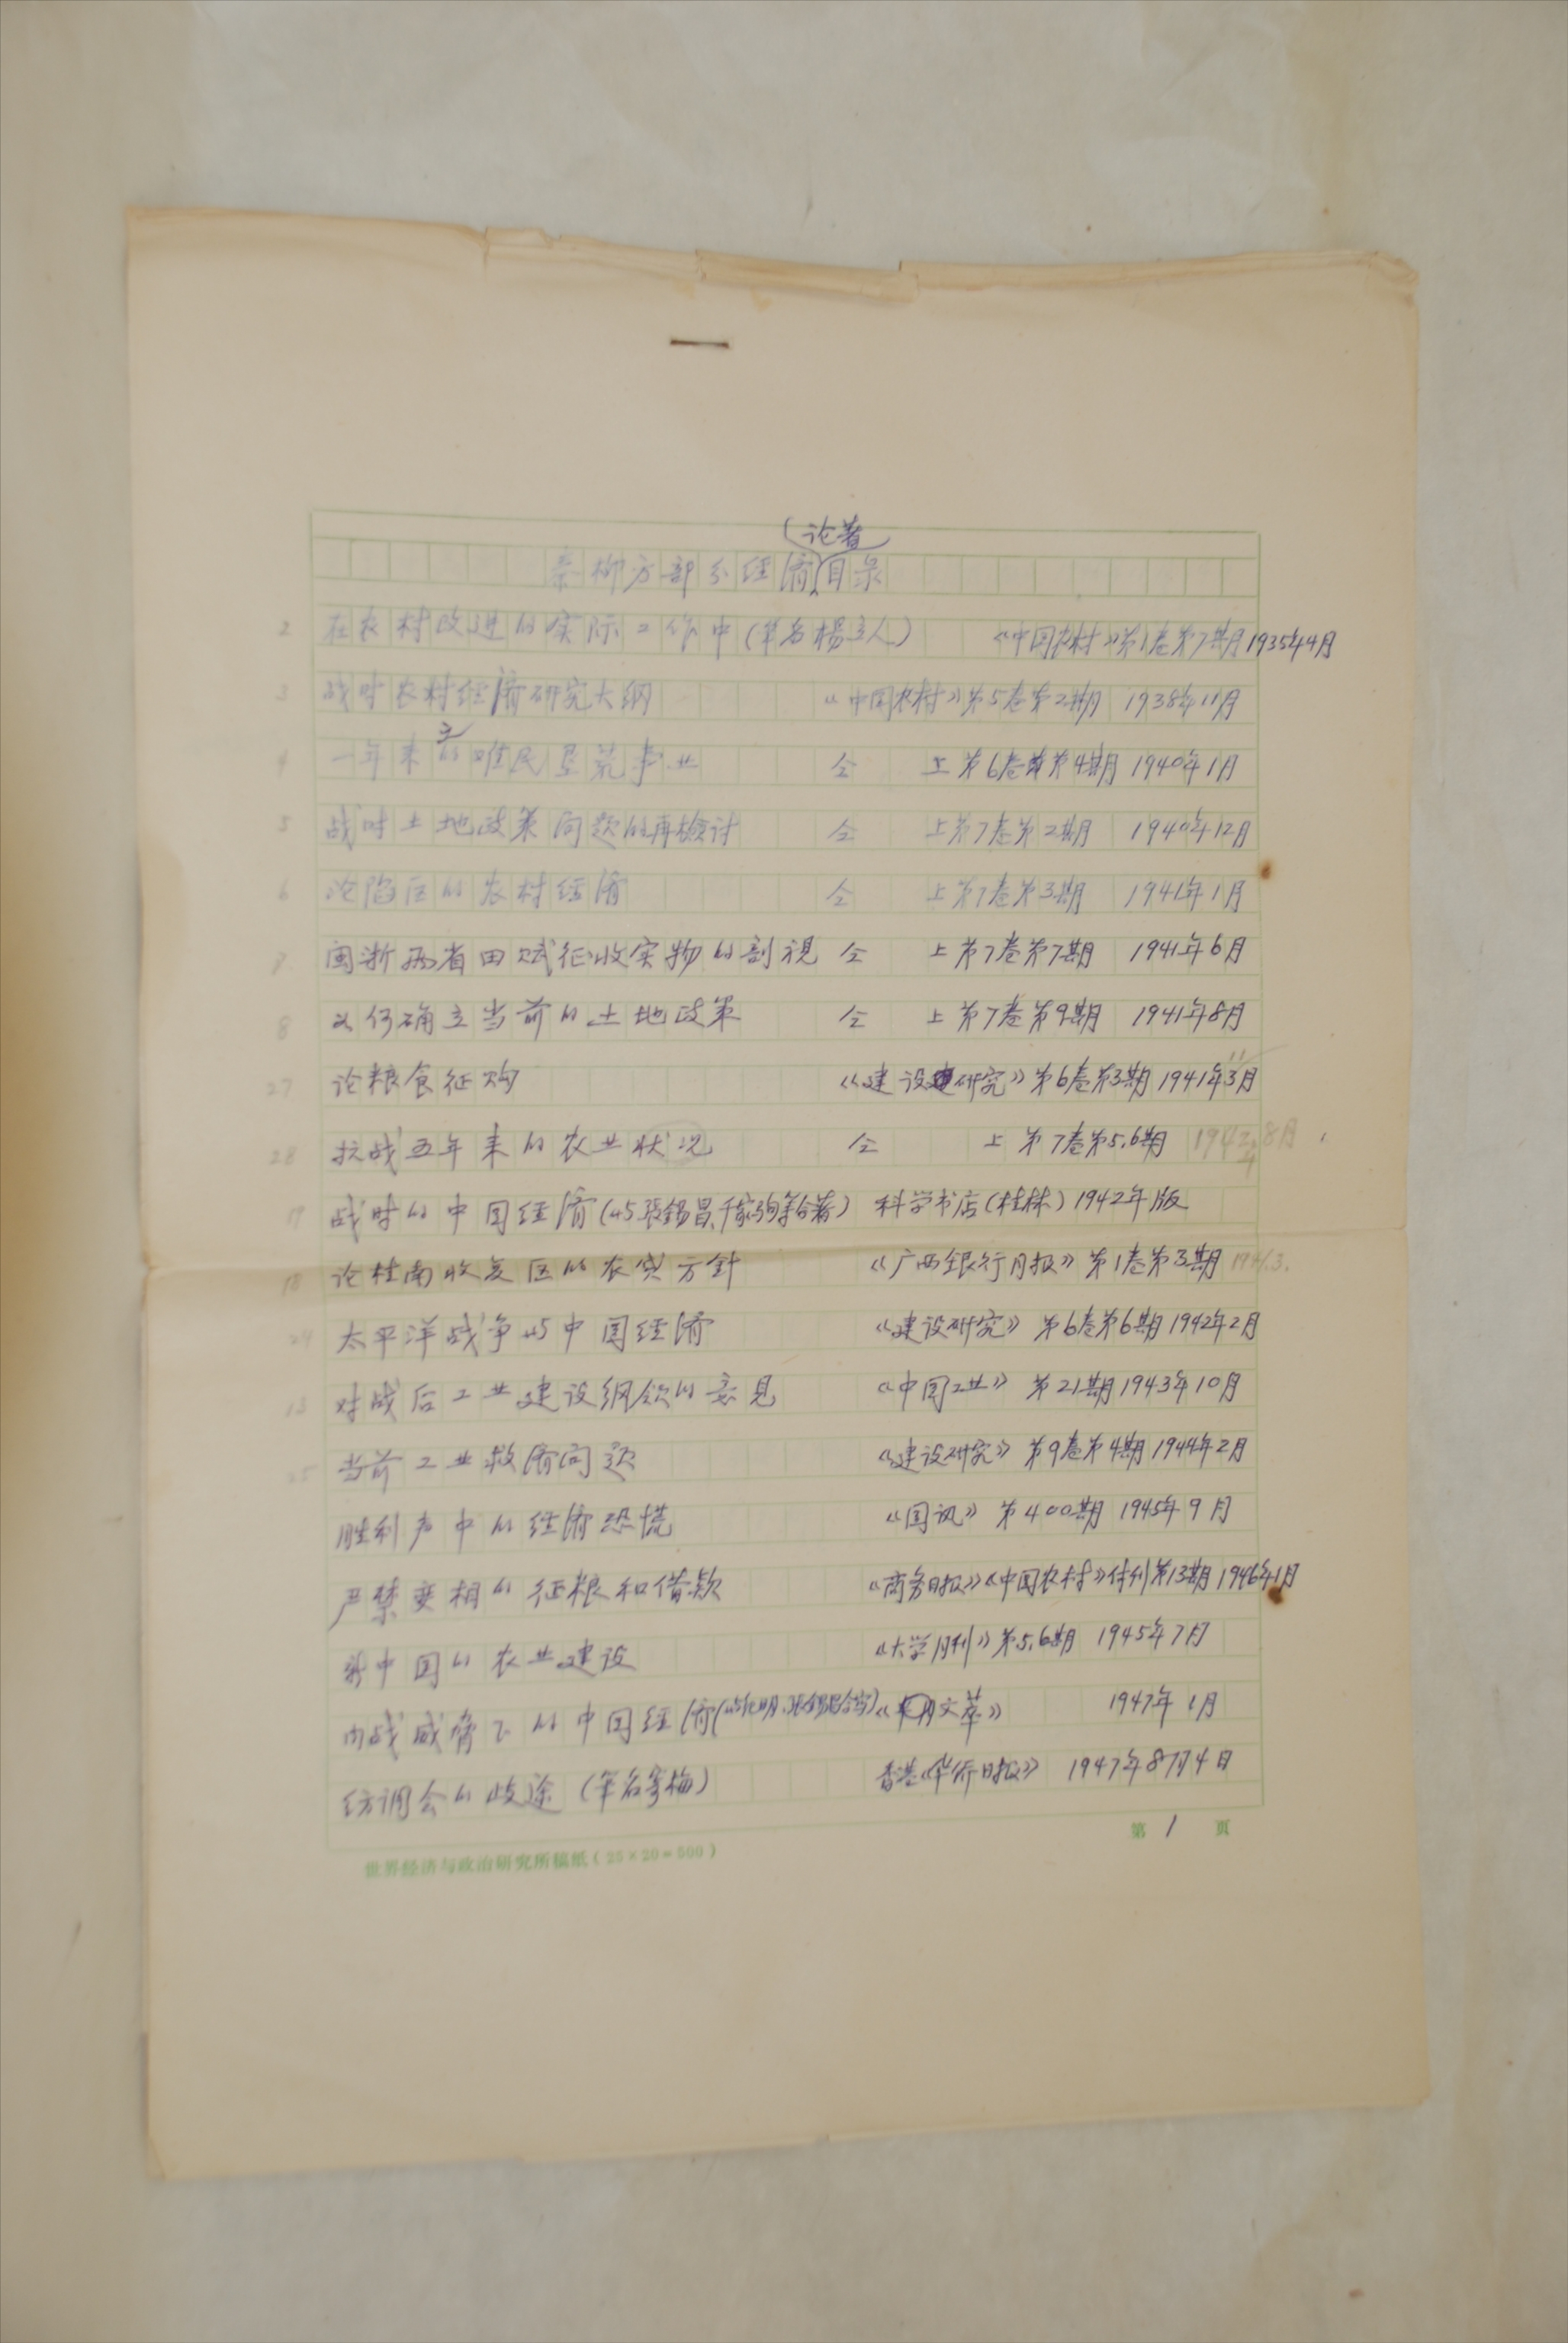 秦柳方部分经济论著目录
2 在农村改进的实际工作中(笔名杨立人) 《中国农村》第1卷第7期 1935年4月
3 战时农村经济研究大纲 《中国农村》第5卷第2期 1938年11月
4 一年来之难民垦荒事业 仝 上第6卷第4期 1940年1月
5 战时土地政策问题的再检讨 仝 上第7卷第2期 1940年12月
6 沦陷区的农村经济 仝 上第7卷第3期 1941年1月
7 闽浙两省田赋征收实物的剖视 仝 上第7卷第7期 1941年6月
8 如何确立当前的土地政策 仝 上第7卷第9期 1941年8月
27 论粮食征购 《建设研究》第6卷第3期 1941年11月
28 抗战五年来的农业状况 仝 上第7卷第5.6期 1942 8月
19 战时的中国经济(与张锡昌、千家驹等合著) 科学书店(桂林)1942年版
18 论桂南收复区的农贷方针 《广西银行月报》第1卷第3期 1941.3.
24 太平洋战争与中国经济 《建设研究》第6卷第6期 1942年2月
13 对战后工业建设纲领的意见 《中国工业》第21期 1943年10月
25 当前工业救济问题 《建设研究》第9卷第4期 1944年2月
胜利声中的经济恐慌 《国讯》第400期 1945年9月
严禁变相的征粮和借款 《商务日报》《中国农村》付刊第13期 1946年1月
新中国的农业建设 《大学月刊》第5.6期 1945年7月
内战威胁下的中国经济(与 张锡昌合写) 《 文萃》 1947年1月
纺调会的歧途(笔名寄梅) 香港《华侨日报》 1947年8月4日
第 1 页
世界经济与政治研究所稿纸(25×20=500)